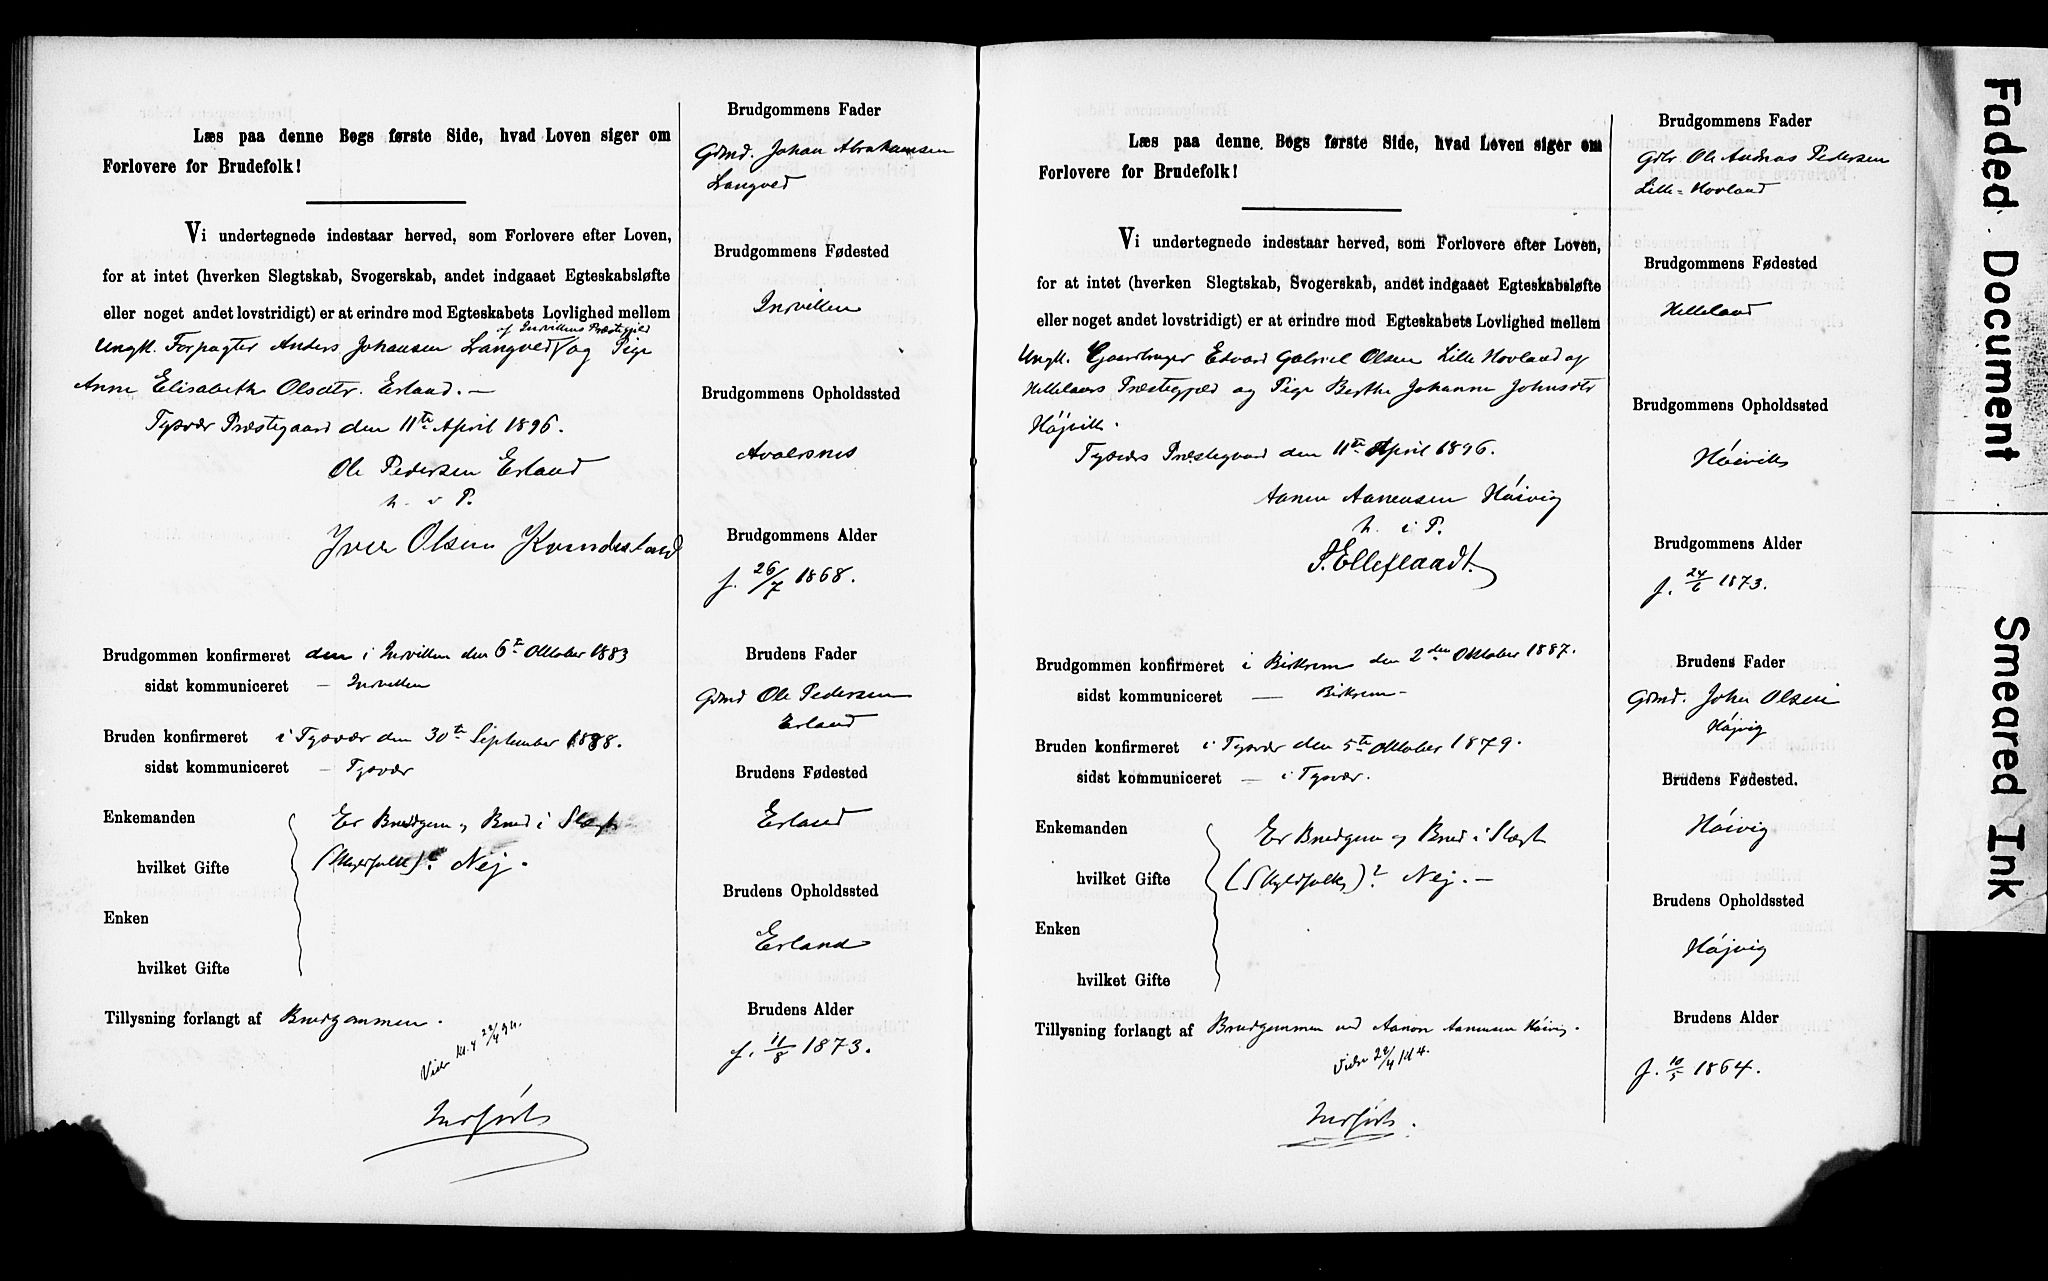 Læs paa denne Bogs første Side, hvad Loven siger om
Forlovere for Brudefolk!
Vi undertegnede indestaar herved, som Forlovere efter Loven,
for at intet (hverken Slegtskab, Svogerskab, andet indgaaet Egteskabsløfte
eller noget andet lovstridigt) er at erindre mod Egteskabets Lovlighed mellem
af Insvikens Præstegjeld
Ungk. Forpagter Anders Johansen Langved og Pige
Anne Elisabeth Olsdtr. Erland. —
Tysvær Præstegaard den 11te April 1896.
Ole Pedersen Erland
h. i P.
Iver Olsen
Brudgommen konfirmeret i den 6te Oktober 1883
sidst kommuniceret —
Bruden konfirmeret i Tysvær den 30te September 1888.
sidst kommuniceret — Tysvær
Enkemanden
hvilket Gifte
Enken
hvilket Gifte
Er Brudgom og Brud i Slægt
(Skyldfolk)? Nej.
Tillysning forlangt af Brudgommen.
Indført
Brudgommens Fader
Gdmd. Johan Abrahamsen
Langved
Brudgommens Fødested
Brudgommens Opholdssted
Avalsnes
Brudgommens Alder
f. 26/7 1868.
Brudens Fader
Gdmd Ole Pedersen
Erland
Brudens Fødested
Erland
Brudens Opholdssted
Erland
Brudens Alder
f. 11/8 1873.
Læs paa denne Bogs første Side, hvad Loven siger om
Forlovere for Brudefolk!
Vi undertegnede indestaar herved, som Forlovere efter Loven,
for at intet (hverken Slegtskab, Svogerskab, andet indgaaet Egteskabsløfte
eller noget andet lovstridigt) er at erindre mod Egteskabets Lovlighed mellem
Ungk. Gaardbruger Edvard Gabriel Olsen Lille Hovland af
Hellelands Præstegjeld og Pige Berthe Johanne Johnsdtr
Højvik.
Tysvær Præstegaard den 11te April 1896.
Aanen Aanensen Höivig
h. i P.
S. Elleflaadt.
Brudgommen konfirmeret i Birkrem den 2den Oktober 1887.
sidst kommuniceret — Birkrem —
Bruden konfirmeret i Tysvær den 5te Oktober 1879.
sidst kommuniceret — i Tysvær.
Enkemanden
hvilket Gifte
Enken
hvilket Gifte
Er Brudgom og Brud i Slægt
(Skyldfolk)? Nej. —
Tillysning forlangt af Brudgommen ved Aanen Aanensen Höivig.
Indført.
Brudgommens Fader
Gdbr Ole Andreas Pedersen
Lille-Hovland
Brudgommens Fødested
Helleland
Brudgommens Opholdssted
Höivik
Brudgommens Alder
f. 24/6 1873.
Brudens Fader
Gdmd. John Olsen
Höjvig
Brudens Fødested.
Höivig
Brudens Opholdssted
Höjvig
Brudens Alder
f. 10/5 1864.
Faded Document
Smeared Ink